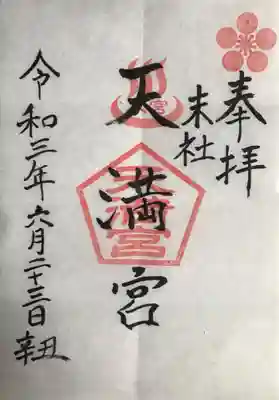 奉拝
末社
天満宮
令和三年六月二十三日 辛丑